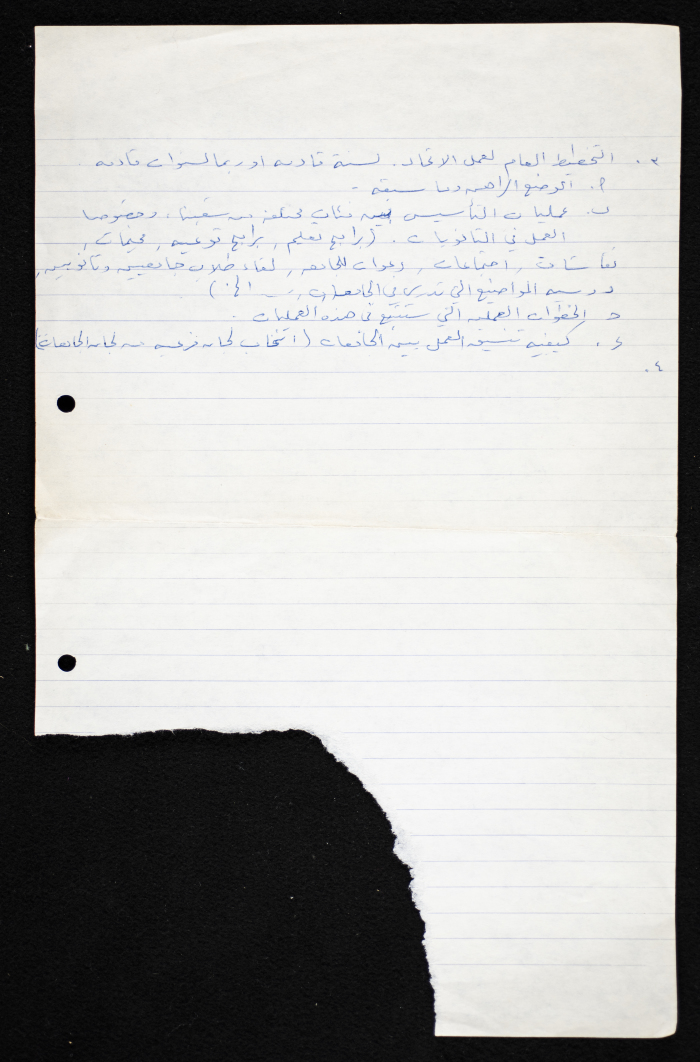 ٣. التخطيط العام لعمل الاتحاد. لسنة قادمه او ربما لسنوات قادمه
أ. الوضع الراهن وما سبقه -
ب. عمليات التأسيس بين فئات مختلفة من شعبنا، وخصوصا
العمل في الثانويات. (برامج تعليم, برامج توعيه, مخيمات,
نقاشات, اجتماعات, دعوات للجامعه, لقاء طلاب جامعيين وثانويين,
دراسة المواضيع التي تدرس في الجامعات, الخ)
ج الخطوات العمليه التي ستتبع في هذه العمليات.
٤. كيفيه تنسيق العمل بين الجامعات (انتخاب لجان فرعيه من لجان الجامعات)
٤.